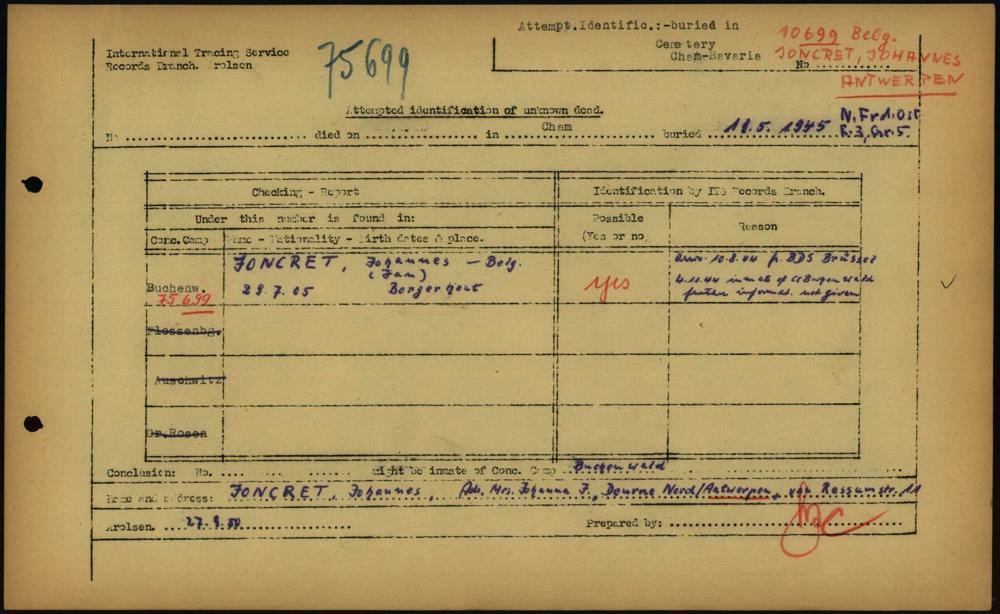 Attempt.Identific.:-buried in
Cemetery
Cham-Bavaria
No
10699 Belg.
JONCRET, JOHANNES
ANTWERPEN
International Tracing Service
Records Branch. Arolsen
75699
Attempted identification of unknown dead.
No ............... died on ............... in Cham ............... buried 18.5.1945 N.Frd.Ost
R.3, Gr.5.
Checking - Report
Identification by ITS Records Branch.
Under this number is found in:
Possible
(Yes or no)
Reason
Conc.Camp
Name - Nationality - Birth dates & place.
JONCRET, Johannes - Belg.
(Jan)
Buchenw.
75699
29.7.05 Borgerhout
yes
10.8.44 BDS Brüssel
4.11.44 inmate of
informat. not given
Flossenbg.
Auschwitz
Gr.Rosen
Conclusion: No. ............... might be inmate of Conc. Camp Buchenwald
Name and address: JONCRET, Johannes, Adr. Mrs. Johanna J., Deurne Nord/Antwerpen, van Ressumstr. 11
Arolsen. 27.9.50
Prepared by: